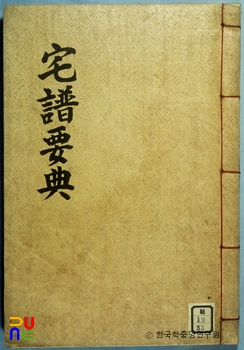 宅譜要典
19
ⓒ 한국학중앙연구원